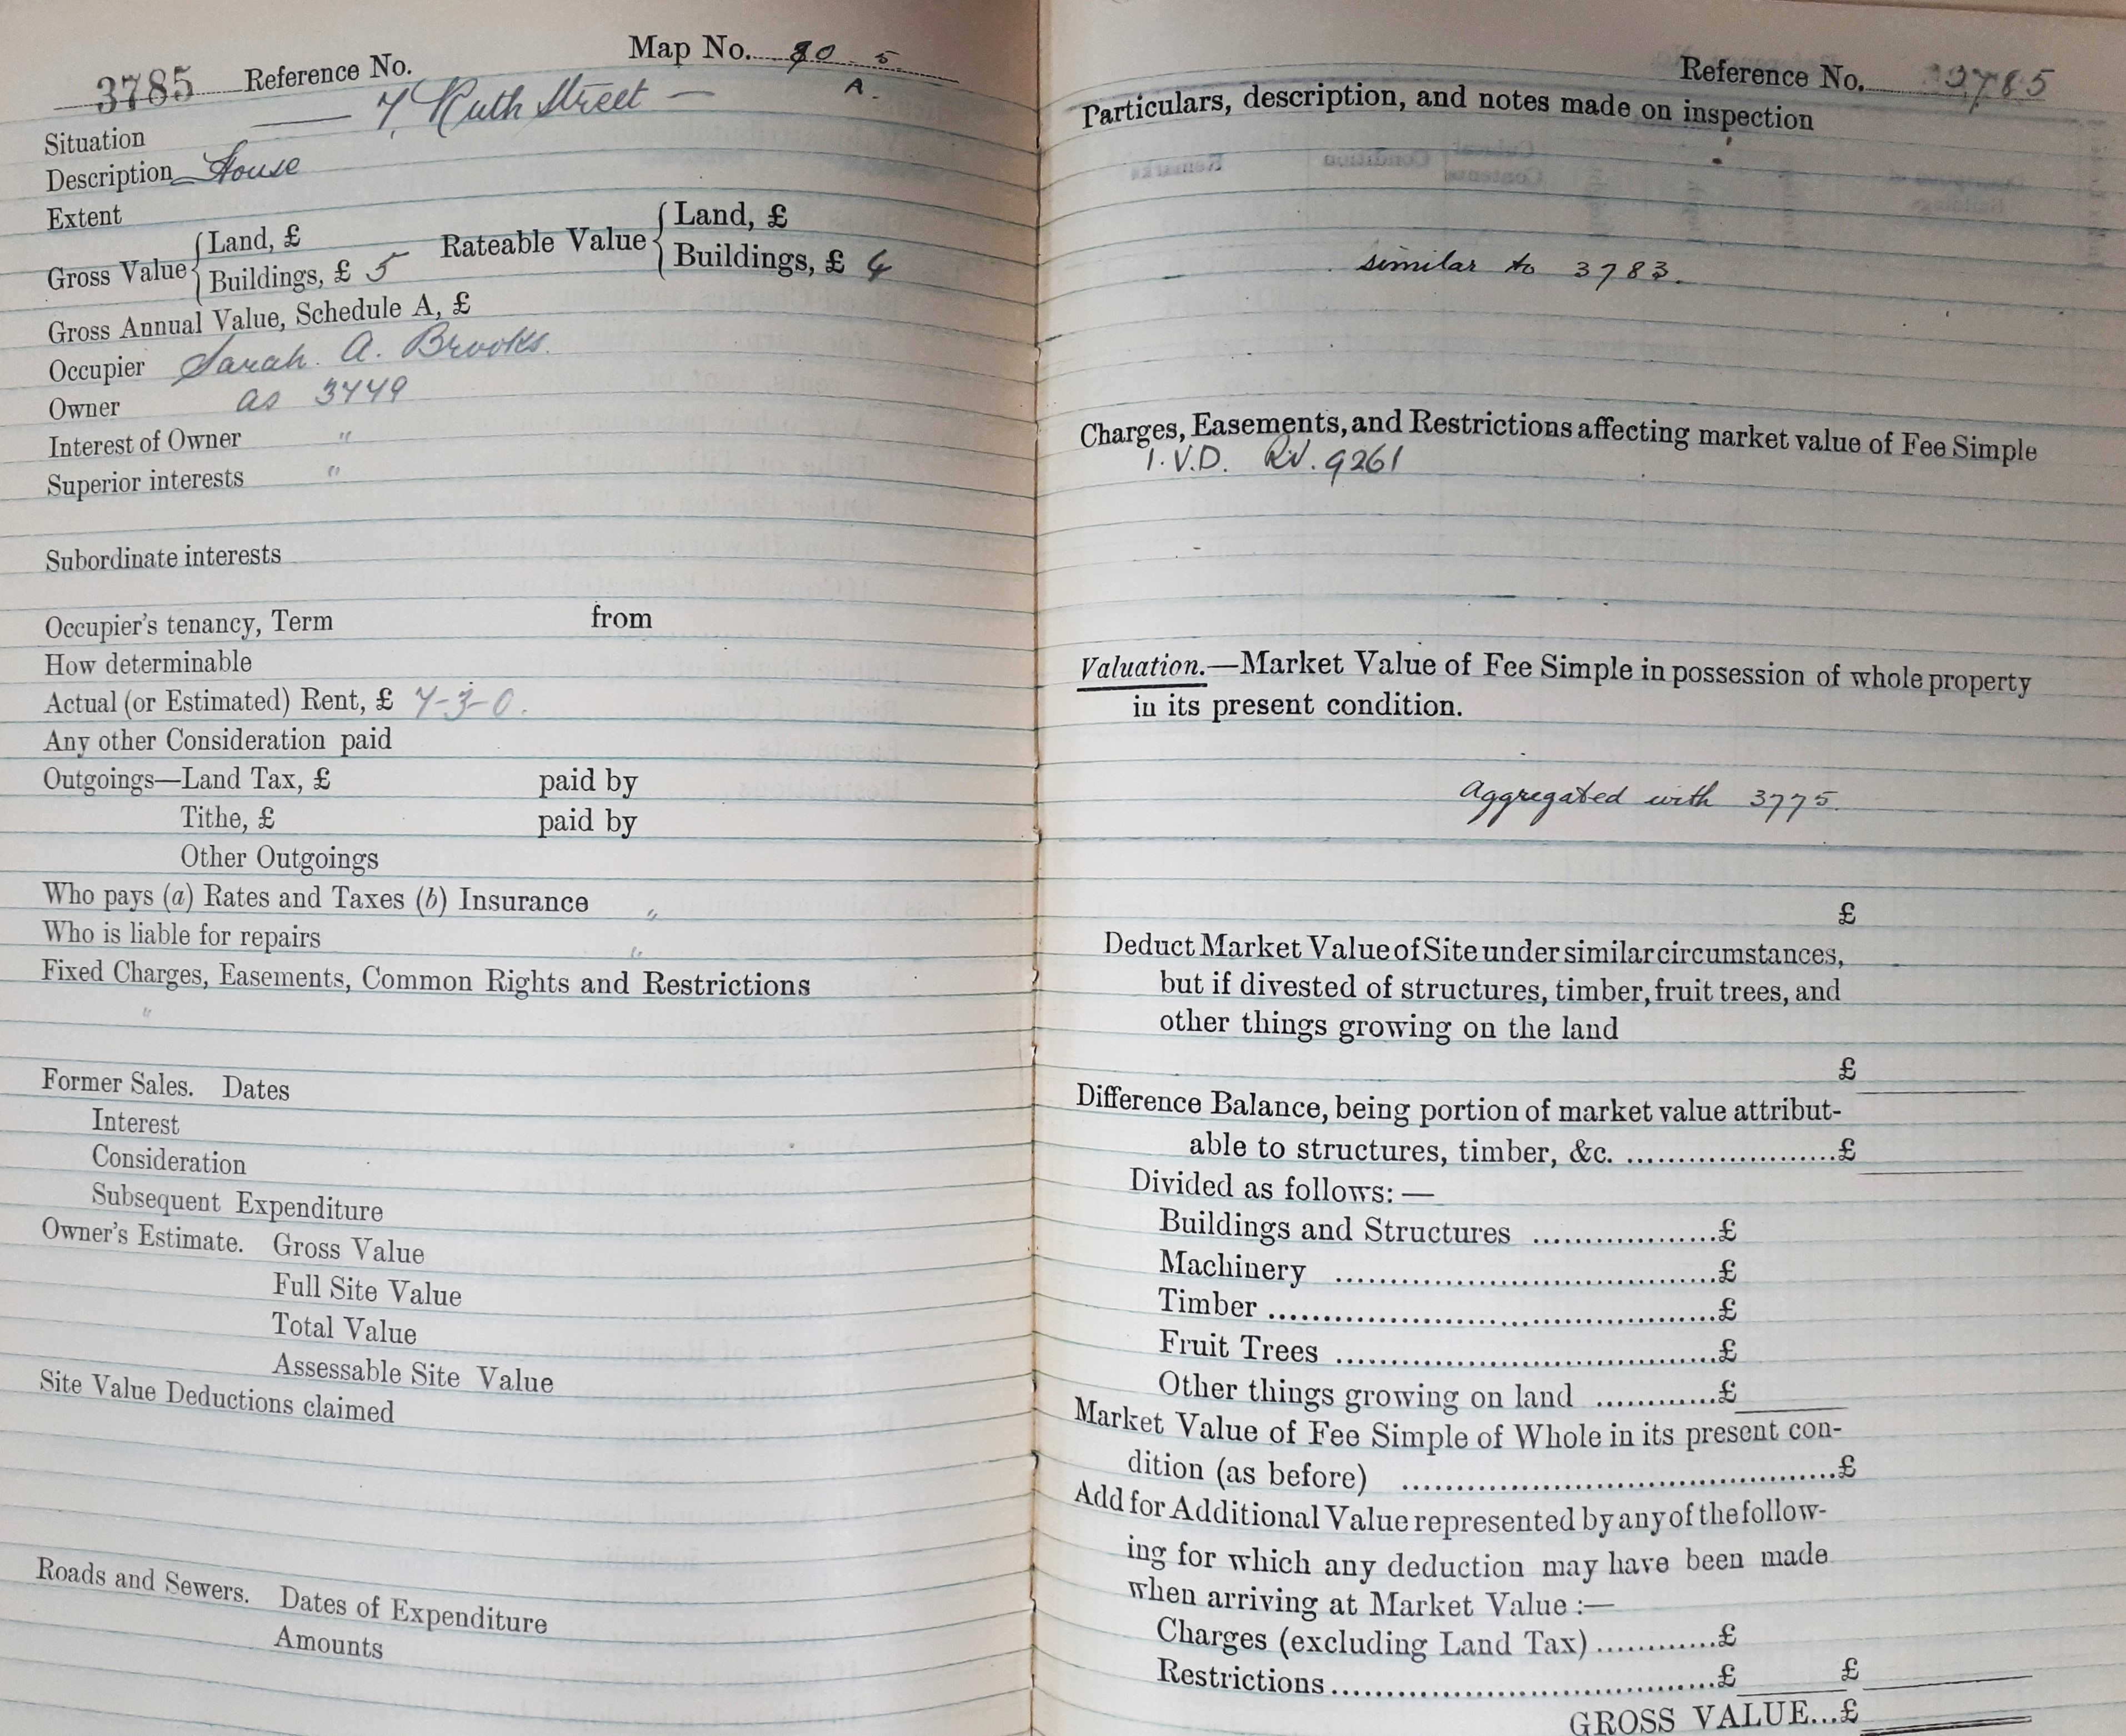 3785 Reference No. Map No. 80 5
A.
Situation 7, Ruth Street
Description House
Extent
Gross Value { Land, £
Buildings, £ 5
Rateable Value { Land, £
Buildings, £ 4
Gross Annual Value, Schedule A, £
Occupier Sarah. A. Brooks.
Owner as 3779
Interest of Owner "
Superior interests "
Subordinate interests
Occupier's tenancy, Term from
How determinable
Actual (or Estimated) Rent, £ 7-3-0.
Any other Consideration paid
Outgoings—Land Tax, £ paid by
Tithe, £ paid by
Other Outgoings
Who pays (a) Rates and Taxes (b) Insurance "
Who is liable for repairs "
Fixed Charges, Easements, Common Rights and Restrictions
"
Former Sales. Dates
Interest
Consideration
Subsequent Expenditure
Owner's Estimate. Gross Value
Full Site Value
Total Value
Assessable Site Value
Site Value Deductions claimed
Roads and Sewers. Dates of Expenditure
Amounts
Reference No. 3785
Particulars, description, and notes made on inspection
similar to 3783.
Charges, Easements, and Restrictions affecting market value of Fee Simple
I.V.D. RN. 9261
Valuation.—Market Value of Fee Simple in possession of whole property
in its present condition.
Aggregated with 3775.
£
Deduct Market Value of Site under similar circumstances,
but if divested of structures, timber, fruit trees, and
other things growing on the land
£
Difference Balance, being portion of market value attribut-
able to structures, timber, &c. .....................£
Divided as follows:—
Buildings and Structures ..................£
Machinery ......................................£
Timber .............................................£
Fruit Trees ......................................£
Other things growing on land ............£
Market Value of Fee Simple of Whole in its present con-
dition (as before) ...........................................£
Add for Additional Value represented by any of the follow-
ing for which any deduction may have been made
when arriving at Market Value :—
Charges (excluding Land Tax) ............£
Restrictions ......................................£ £
GROSS VALUE...£